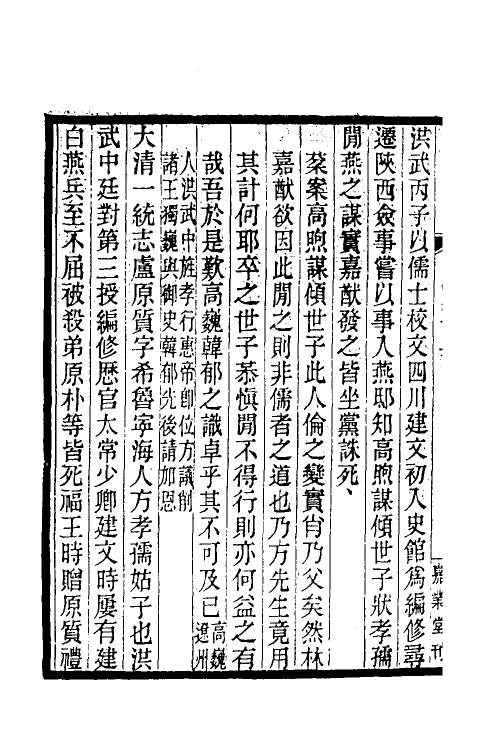 洪武丙子以儒士校文四川建文初入史館爲編修尋
遷陝西僉事嘗以事入燕邸知高煦謀傾世子狀孝孺
閒燕之謀實嘉猷發之皆坐黨誅死
棻案高煦謀傾世子此人倫之變實肖乃父矣然林
嘉猷欲因此閒之則非儒者之道也乃方先生竟用
其計何耶卒之世子恭慎閒不得行則亦何益之有
哉吾於是歎高巍韓郁之識卓乎其不可及已高巍遼州
人洪武中旌孝行惠帝卽位方議削
諸王獨巍與御史韓郁先後請加恩
大清一統志盧原質字希魯寧海人方孝孺姑子也洪
武中廷對第三授編修歷官太常少卿建文時屢有建
白燕兵至不屈被殺弟原朴等皆死福王時贈原質禮
嘉業堂刊